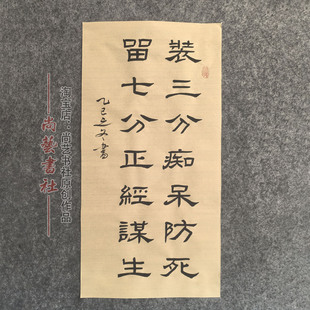 裝三分痴呆防死
留七分正經謀生
乙巳之冬書
尚藝書社
淘宝店：尚艺书社原创作品